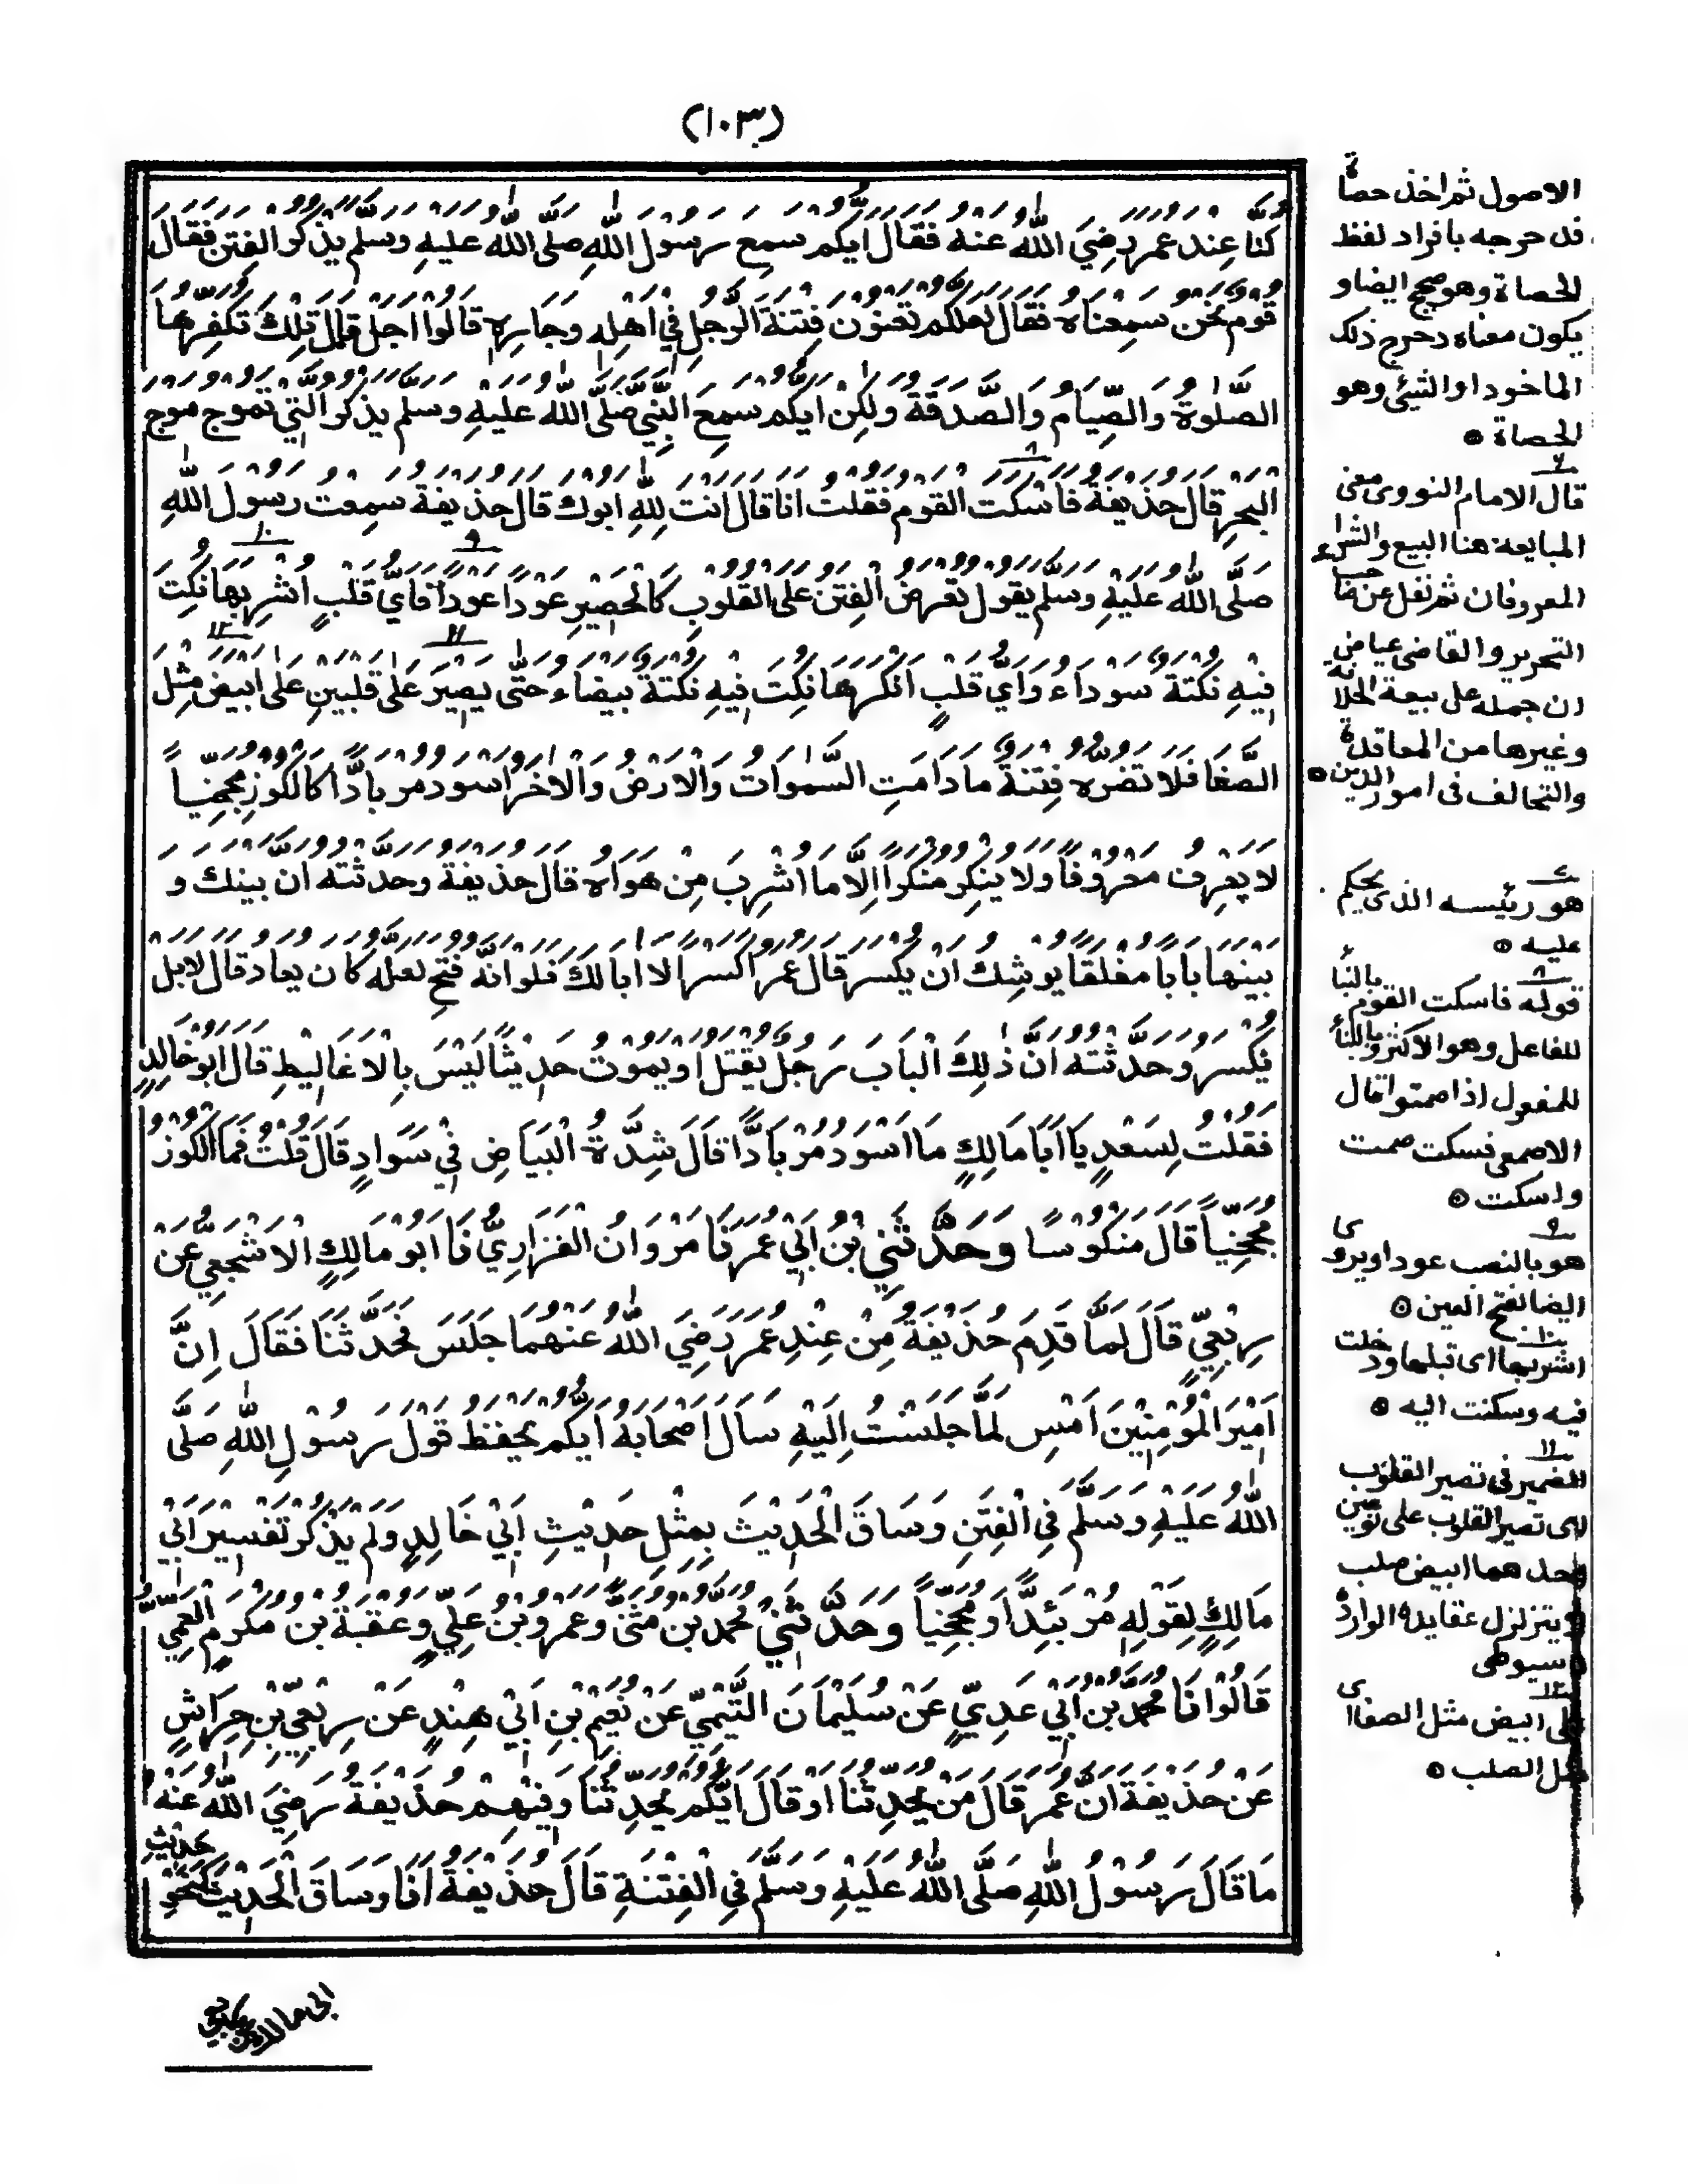 (١٠٣)
كُنَّا عِنْدَ عُمَرَ رَضِيَ اللّٰهُ عَنْهُ فَقَالَ اَيُّكُمْ سَمِعَ رَسُوْلَ اللّٰهِ صَلَّى اللّٰهُ عَلَيْهِ وَسَلَّمَ يَذْكُرُ الْفِتَنَ فَقَالَ
قَوْمٌ نَحْنُ سَمِعْنَاهُ فَقَالَ لَعَلَّكُمْ تَعْنُوْنَ فِتْنَةَ الرَّجُلِ فِيْ اَهْلِهٖ وَجَارِهٖ قَالُوْا اَجَلْ قَالَ تِلْكَ تُكَفِّرُهَا
الصَّلٰوةُ وَالصِّيَامُ وَالصَّدَقَةُ وَلٰكِنْ اَيُّكُمْ سَمِعَ النَّبِيَّ صَلَّى اللّٰهُ عَلَيْهِ وَسَلَّمَ يَذْكُرُ الَّتِيْ تَمُوْجُ مَوْجَ
الْبَحْرِ قَالَ حُذَيْفَةُ فَاَسْكَتَ الْقَوْمُ فَقُلْتُ اَنَا قَالَ اَنْتَ لِلّٰهِ اَبُوْكَ قَالَ حُذَيْفَةُ سَمِعْتُ رَسُوْلَ اللّٰهِ
صَلَّى اللّٰهُ عَلَيْهِ وَسَلَّمَ يَقُوْلُ تُعْرَضُ الْفِتَنُ عَلَى الْقُلُوْبِ كَالْحَصِيْرِ عُوْدًا عُوْدًا فَاَيُّ قَلْبٍ اُشْرِبَهَا نُكِتَ
فِيْهِ نُكْتَةٌ سَوْدَاءُ وَاَيُّ قَلْبٍ اَنْكَرَهَا نُكِتَ فِيْهِ نُكْتَةٌ بَيْضَاءُ حَتّٰى يَصِيْرَ عَلٰى قَلْبَيْنِ عَلٰى اَبْيَضَ مِثْلَ
الصَّفَا فَلَا تَضُرُّهٗ فِتْنَةٌ مَا دَامَتِ السَّمٰوَاتُ وَالْاَرْضُ وَالْاٰخَرُ اَسْوَدُ مُرْبَادًّا كَالْكُوْزِ مُجَخِّيًا
لَا يَعْرِفُ مَعْرُوْفًا وَلَا يُنْكِرُ مُنْكَرًا اِلَّا مَا اُشْرِبَ مِنْ هَوَاهُ قَالَ حُذَيْفَةُ وَحَدَّثْتُهٗ اَنَّ بَيْنَكَ وَ
بَيْنَهَا بَابًا مُغْلَقًا يُوْشِكُ اَنْ يُكْسَرَ قَالَ عُمَرُ اَكَسْرًا لَا اَبَا لَكَ فَلَوْ اَنَّهٗ فُتِحَ لَعَلَّهٗ كَانَ يُعَادُ قَالَ لَا بَلْ
يُكْسَرُ وَحَدَّثْتُهٗ اَنَّ ذٰلِكَ الْبَابَ رَجُلٌ يُقْتَلُ اَوْ يَمُوْتُ حَدِيْثًا لَيْسَ بِالْاَغَالِيْطِ قَالَ اَبُوْ خَالِدٍ
فَقُلْتُ لِسَعْدٍ يَا اَبَا مَالِكٍ مَا اَسْوَدُ مُرْبَادًّا قَالَ شِدَّةُ الْبَيَاضِ فِيْ سَوَادٍ قَالَ قُلْتُ فَمَا الْكُوْزُ
مُجَخِّيًا قَالَ مَنْكُوْسًا وَحَدَّثَنِيْ بْنُ اَبِيْ عُمَرَ نَا مَرْوَانُ الْفَزَارِيُّ نَا اَبُوْ مَالِكٍ الْاَشْجَعِيُّ عَنْ
رِبْعِيٍّ قَالَ لَمَّا قَدِمَ حُذَيْفَةُ مِنْ عِنْدِ عُمَرَ رَضِيَ اللّٰهُ عَنْهُمَا جَلَسَ يُحَدِّثُنَا فَقَالَ اِنَّ
اَمِيْرَ الْمُؤْمِنِيْنَ اَمْسِ لَمَّا جَلَسْتُ اِلَيْهِ سَاَلَ اَصْحَابَهٗ اَيُّكُمْ يَحْفَظُ قَوْلَ رَسُوْلِ اللّٰهِ صَلَّى
اللّٰهُ عَلَيْهِ وَسَلَّمَ فِي الْفِتَنِ وَسَاقَ الْحَدِيْثَ بِمِثْلِ حَدِيْثِ اَبِيْ خَالِدٍ وَلَمْ يَذْكُرْ تَفْسِيْرَ اَبِيْ
مَالِكٍ لِقَوْلِهٖ مُرْبَئِدًّا وَمُجَخِّيًا وَحَدَّثَنِيْ مُحَمَّدُ بْنُ مُثَنّٰى وَعَمْرُو بْنُ عَلِيٍّ وَعُقْبَةُ بْنُ مُكْرَمٍ الْعَمِّيُّ
قَالُوْا نَا مُحَمَّدُ بْنُ اَبِيْ عَدِيٍّ عَنْ سُلَيْمَانَ التَّيْمِيِّ عَنْ نُعَيْمِ بْنِ اَبِيْ هِنْدٍ عَنْ رِبْعِيِّ بْنِ حِرَاشٍ
عَنْ حُذَيْفَةَ اَنَّ عُمَرَ قَالَ مَنْ يُحَدِّثُنَا اَوْ قَالَ اَيُّكُمْ يُحَدِّثُنَا وَفِيْهِمْ حُذَيْفَةُ رَضِيَ اللّٰهُ عَنْهُ
مَا قَالَ رَسُوْلُ اللّٰهِ صَلَّى اللّٰهُ عَلَيْهِ وَسَلَّمَ فِي الْفِتْنَةِ قَالَ حُذَيْفَةُ اَنَا وَسَاقَ الْحَدِيْثَ كَنَحْوِ حَدِيْثِ
الاصول ثم اخذ حصاة
فدحرجه بافراد لفظ
الحصاة وهو صحيح ايضا و
يكون معناه دحرج ذلك
الماخوذ او الشيئ وهو
الحصاة ٥
٧
قال الامام النووى معنى
المبايعة هنا البيع والشراء
المعروفان ثم نقل عن صاحب
التحرير والقاضى عياض
ان حمله على بيعة الخلافة
وغيرها من المعاقدة
والتحالف فى امور الدين ٥
هو رئيسه الذى يحكم
عليه ٥
٨
قوله فاسكت القوم بالبناء
للفاعل وهو الاكثر وبالبناء
للمفعول اذا صمتوا قال
الاصمعى فسكت صمت
واسكت ٥
٩
هو بالنصب عودا ويروى
ايضا بفتح العين ٥
١٠
اشربها اى قبلها ودخلت
فيه وسكنت اليه ٥
١١
الضمير فى تصير القلوب
اى تصير القلوب على نوعين
احدهما ابيض صلب
لا يتزلزل عقايده الواردة
سيوطى
١٢
على ابيض مثل الصفا اى
الصلب ٥